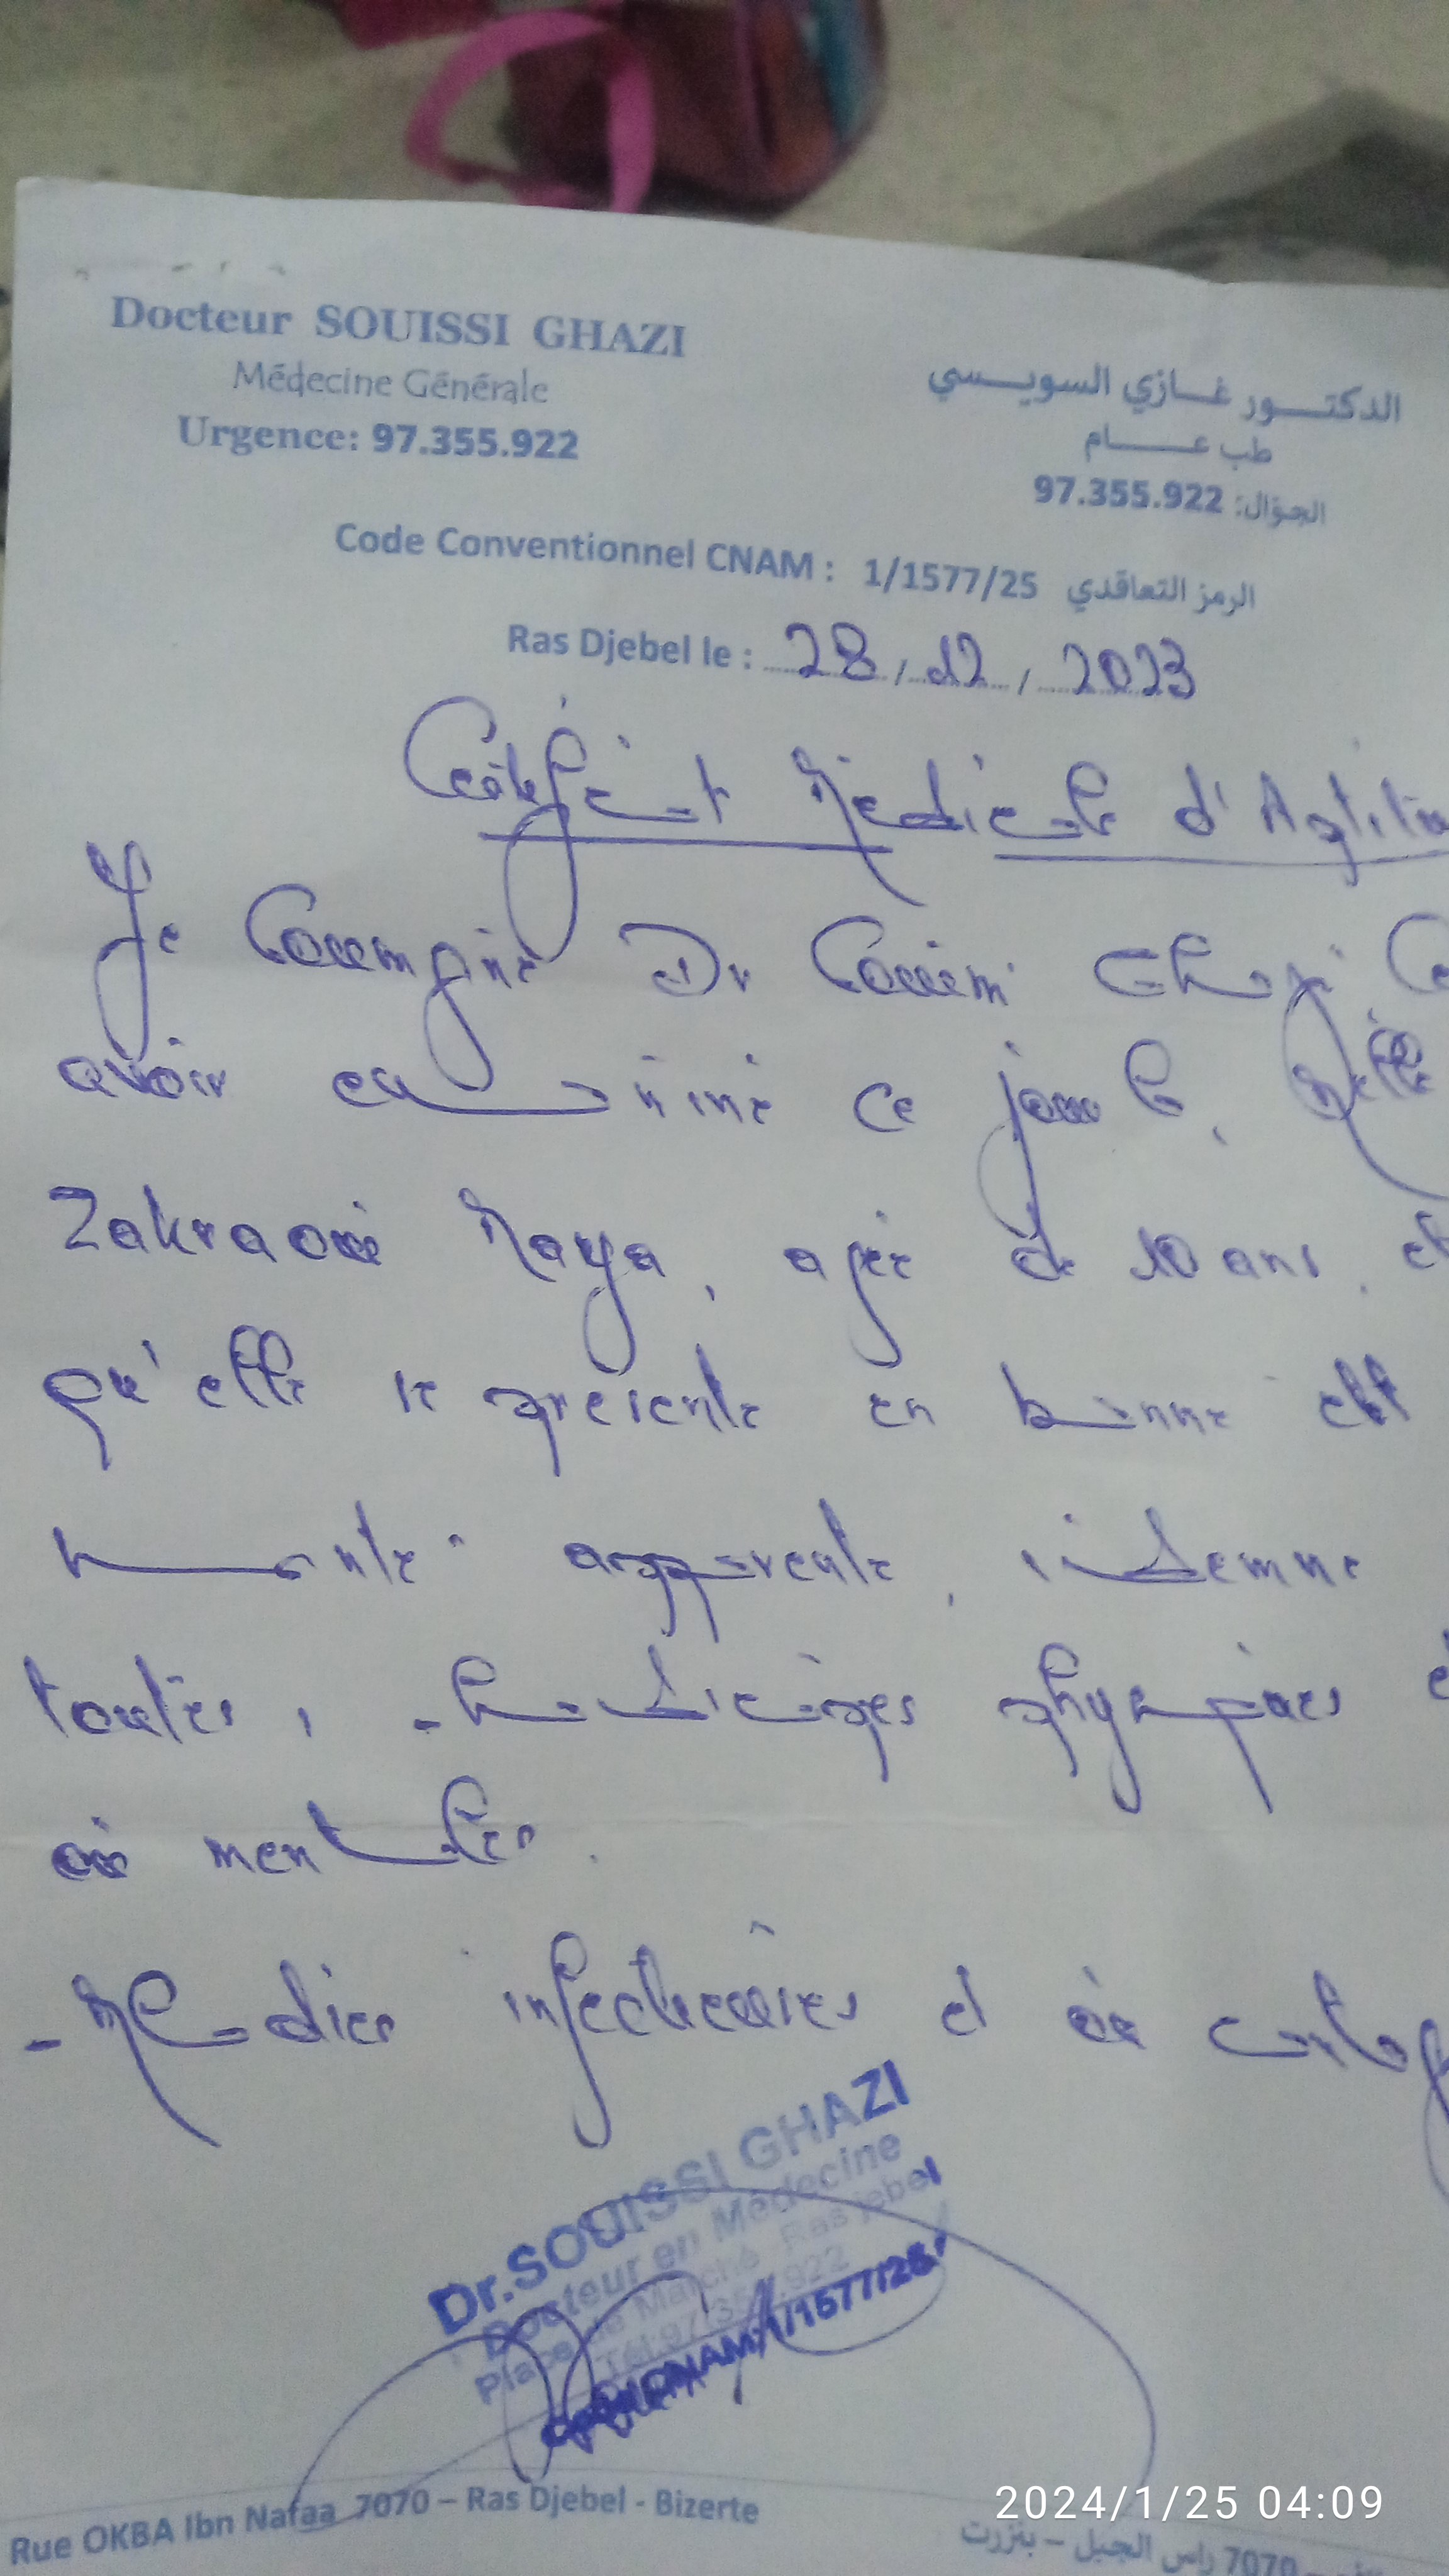 Docteur SOUISSI GHAZI
Médecine Générale
Urgence: 97.355.922
الدكتـــور غـازي السويـــسي
طب عــــام
الجوّال: 97.355.922
Code Conventionnel CNAM : 1/1577/25 الرمز التعاقدي
Ras Djebel le : 28/12/2023
Certificat Médicale d'Aptitu
Je soussigné Dr Souissi Ghazi Ce
avoir examiné ce jour le, Melle
Zakraoui Maya, agée de 10 ans, et
qu'elle se présente en bonne
santé apparente, indemne
toutes, handicapes physiques
ou mentales.
- Maladies infectieuses et ou contag
Dr.SOUISSI GHAZI
Docteur en Médecine
Place de Marché Ras jebel
Tél:97/355.922
CNAM:1/1577/25
Rue OKBA Ibn Nafaa 7070 – Ras Djebel - Bizerte
7070 راس الجبل – بنزرت
2024/1/25 04:09